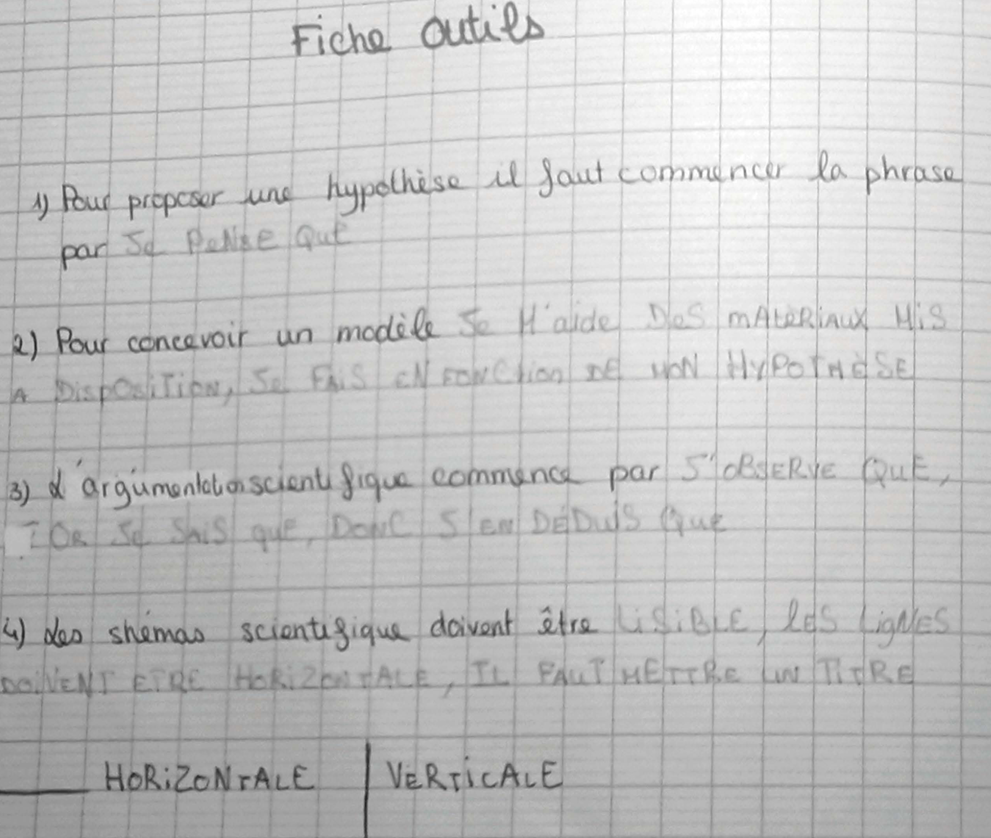 Fiche outils
1) Pour proposer une hypothèse il faut commencer la phrase
par Je PeNsE QuE
2) Pour concevoir un modèle Je M'aide DeS mAtéRiaux MiS
A DispOsiTion, Je FAiS eN FoNCtion DE MON HyPOTHÈSE
3) L'argumentation scientifique commence par J'oBSERVE QuE,
OR Je SaiS que, DONC J'EN DÉDuiS Que
4) des shémas scientifique doivent être LiSiBLE, LeS LigNES
DOiVENT ETRE HoRiZONTALE, IL FAUT METTRE UN TiTRE
HORiZONTALE VERTiCALE